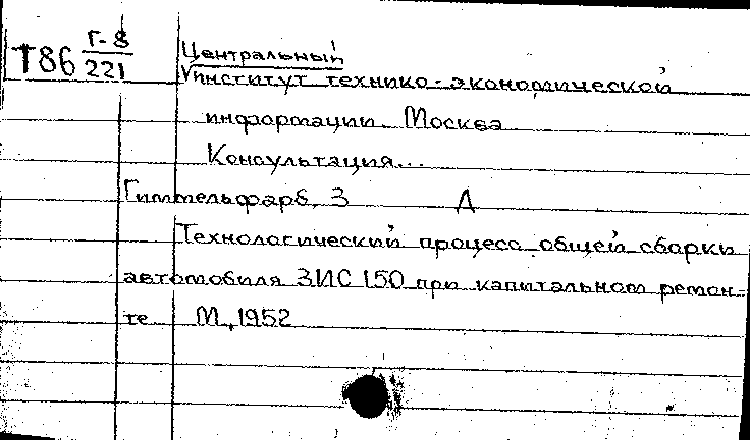 Т86 Г-8/221
Центральный
институт технико-экономической
информации. Москва
Консультация...
Гиттельфарб, З Л
Технологический процесс общей сборки
автомобиля ЗИС 150 при капитальном ремон-
те М, 1952